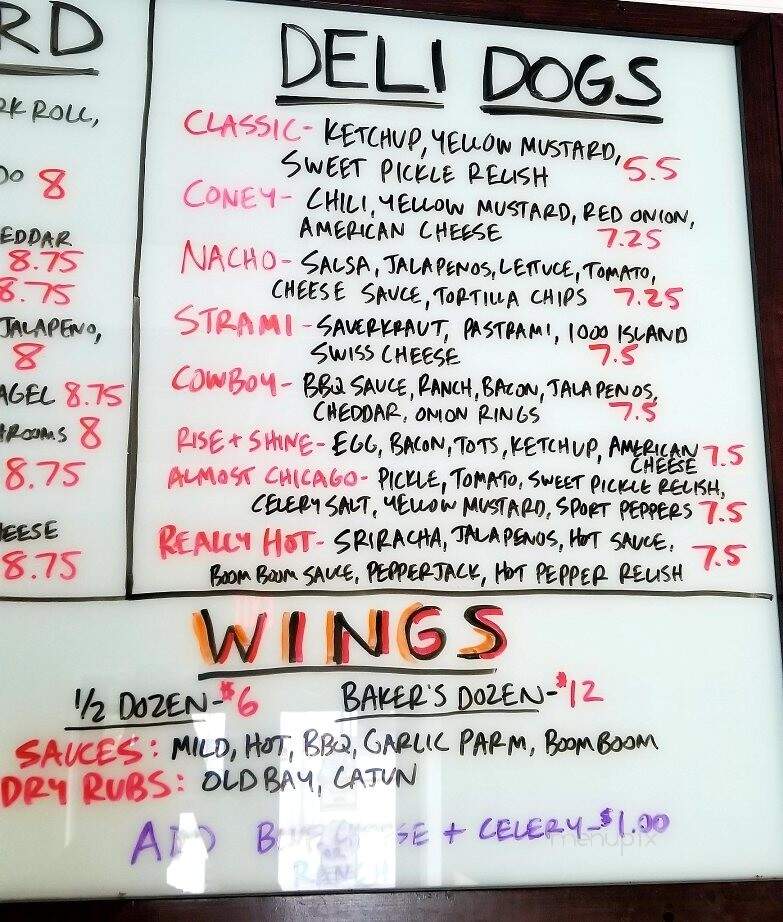 RD
RK ROLL,
8
EDDAR
8.75
8.75
JALAPENO,
8
AGEL 8.75
ROOMS 8
8.75
HEESE
8.75
DELI DOGS
CLASSIC- KETCHUP, YELLOW MUSTARD,
SWEET PICKLE RELISH 5.5
CONEY- CHILI, YELLOW MUSTARD, RED ONION,
AMERICAN CHEESE 7.25
NACHO- SALSA, JALAPENOS, LETTUCE, TOMATO,
CHEESE SAUCE, TORTILLA CHIPS 7.25
STRAMI - SAUERKRAUT, PASTRAMI, 1000 ISLAND
SWISS CHEESE 7.5
COWBOY- BBQ SAUCE, RANCH, BACON, JALAPENOS,
CHEDDAR, ONION RINGS 7.5
RISE + SHINE- EGG, BACON, TOTS, KETCHUP, AMERICAN 7.5
CHEESE
ALMOST CHICAGO- PICKLE, TOMATO, SWEET PICKLE RELISH,
CELERY SALT, YELLOW MUSTARD, SPORT PEPPERS 7.5
REALLY HOT- SRIRACHA, JALAPENOS, HOT SAUCE, 7.5
BOOM BOOM SAUCE, PEPPERJACK, HOT PEPPER RELISH
WINGS
1/2 DOZEN-$6 BAKER'S DOZEN-$12
SAUCES: MILD, HOT, BBQ, GARLIC PARM, BOOM BOOM
DRY RUBS: OLD BAY, CAJUN
ADD BLUE CHEESE + CELERY-$1.00
OR
RANCH
menupix